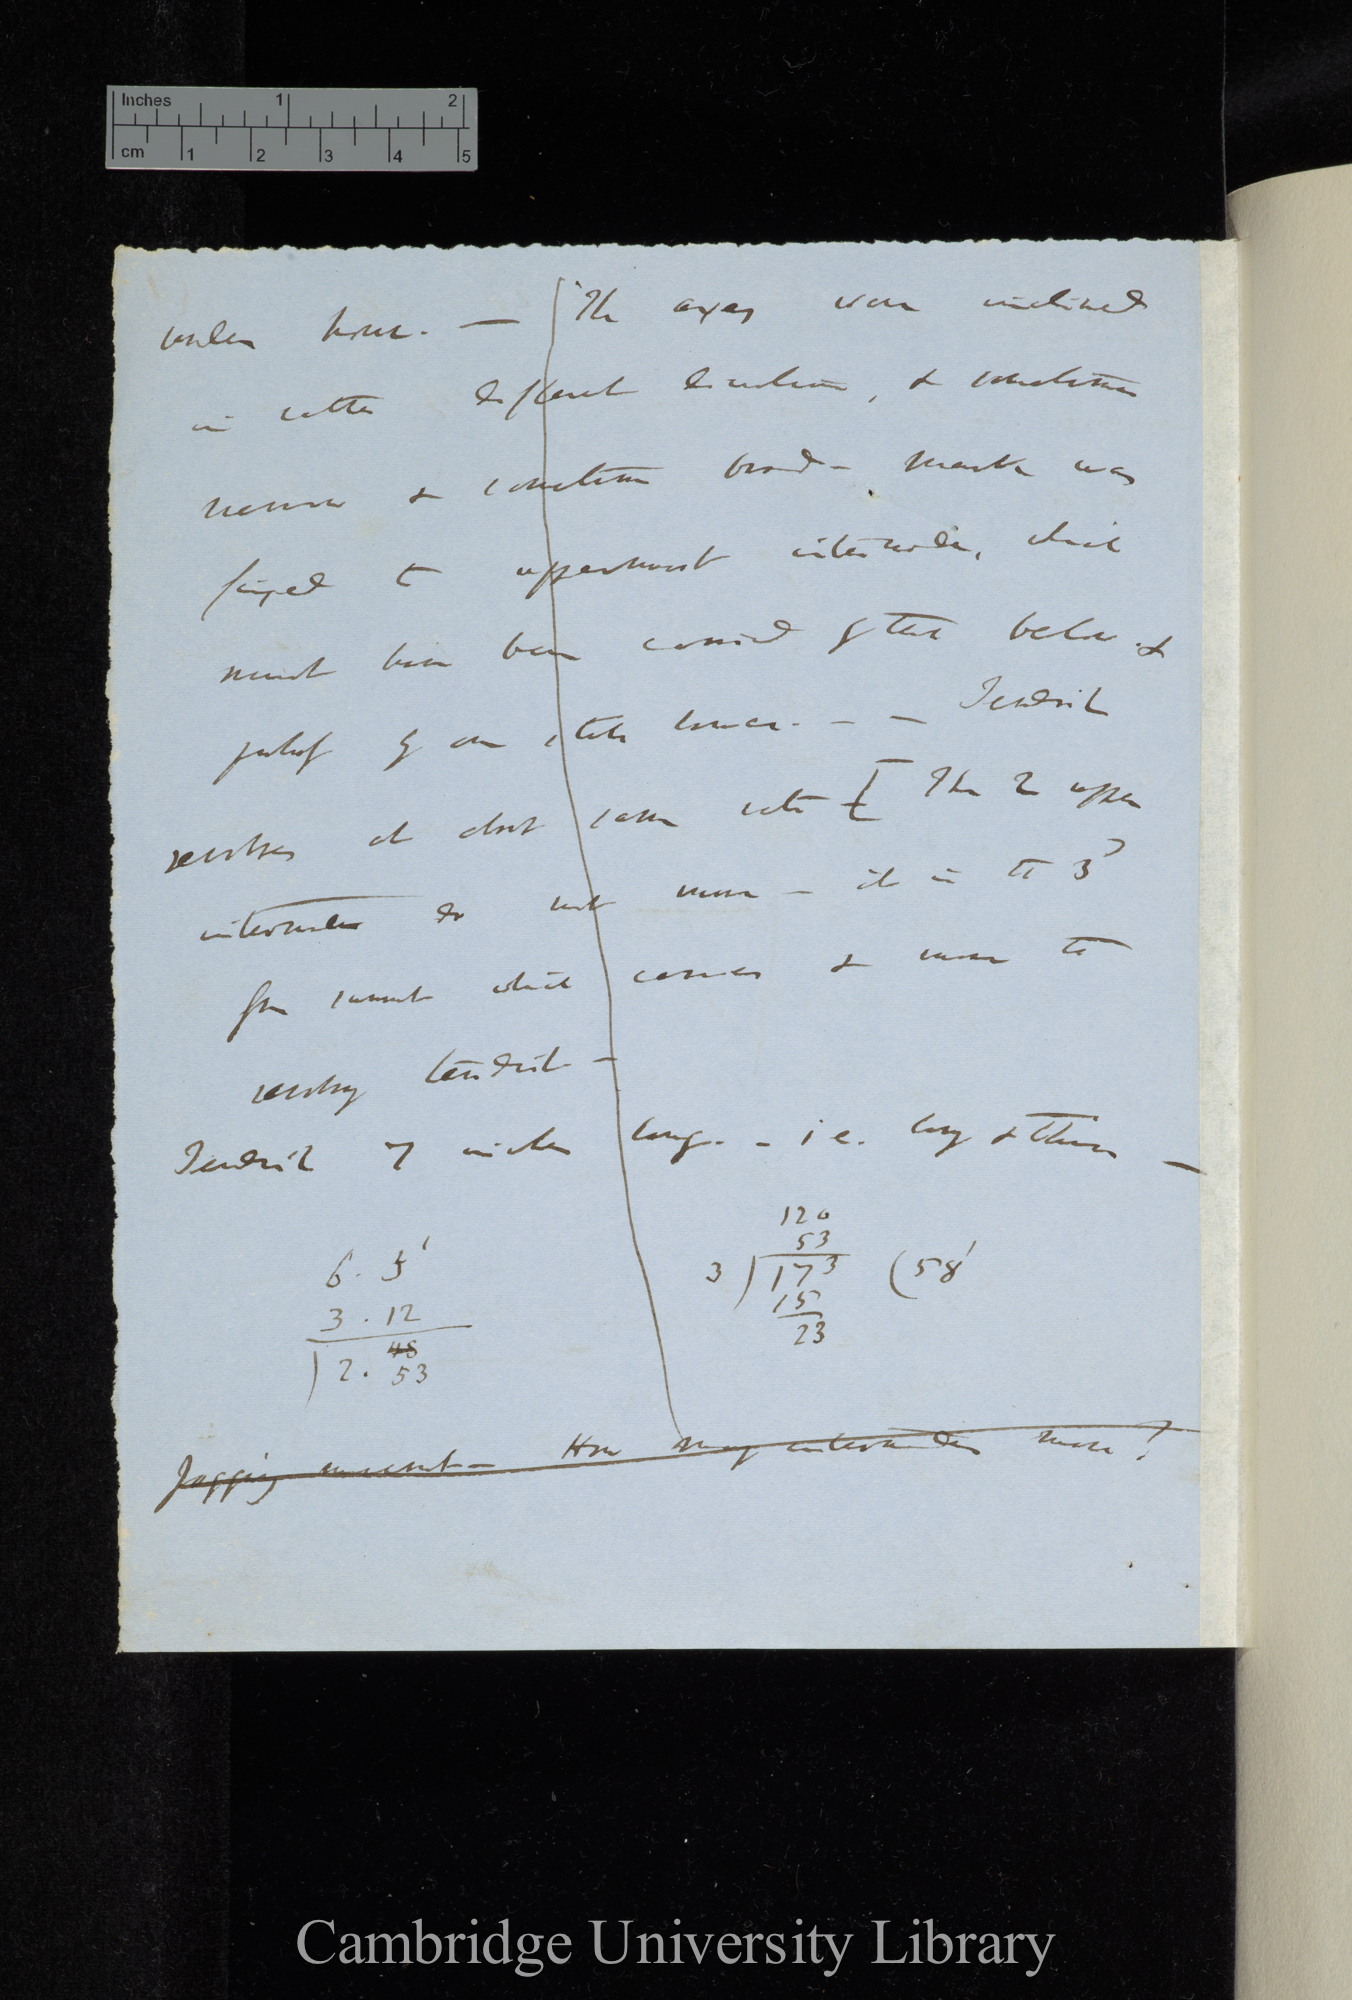 Inches 1 2
cm 1 2 3 4 5
under hour. — The axes were inclined
in rather different direction, & sometimes
narrow & sometimes broad — mark was
fixed to uppermost internode, which
must have been carried by that below &
perhaps by one still lower. — — Tendril
revolves at about same rate — [ The 2 upper
internodes do not move — it is the 3d
from summit which carries & moves the
revolving tendril —
Tendril 7 inches long. — i.e. long & thin —
6. 5'
3 . 12
48
2. 53
120
53
3 ) 173 ( 58'
15
23
Jogging movement — How many internodes move?
Cambridge University Library